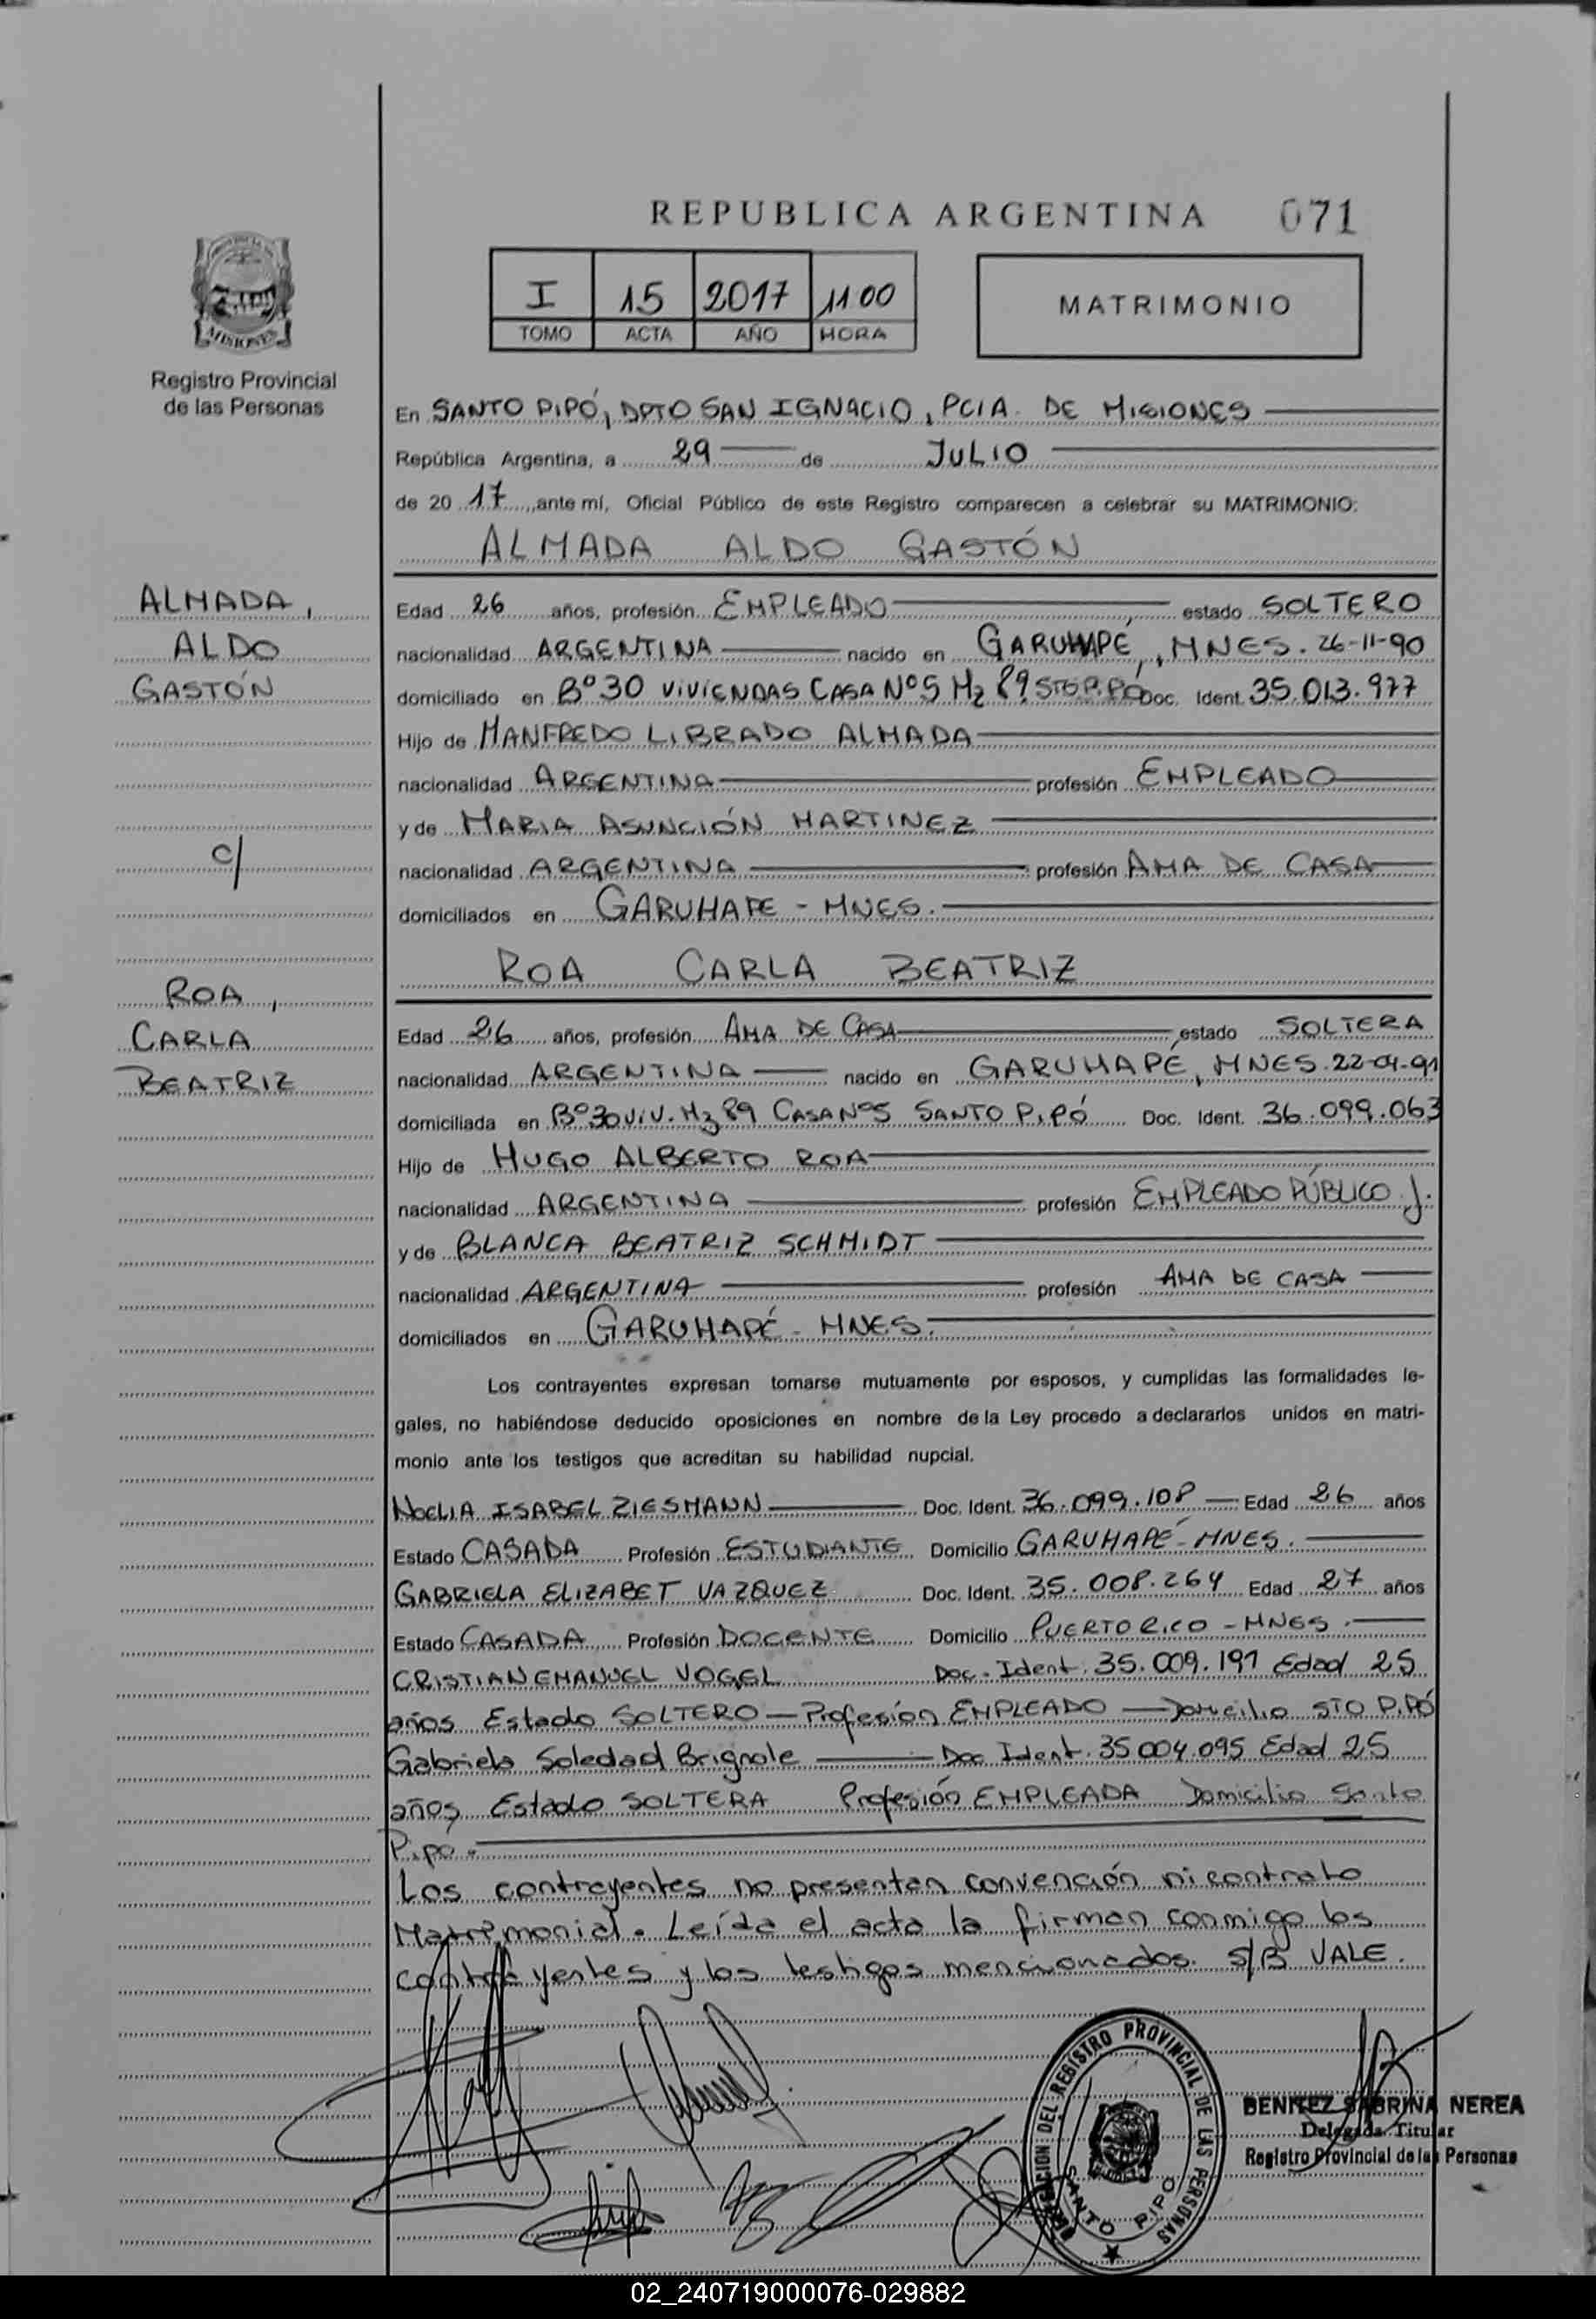 REPUBLICA ARGENTINA 071
I 15 2017 11:00
TOMO ACTA AÑO HORA
MATRIMONIO
MISIONES
Registro Provincial
de las Personas
En SANTO PIPÓ, DPTO SAN IGNACIO, PCIA. DE MISIONES
República Argentina, a 29 de JULIO
de 2017, ante mí, Oficial Público de este Registro comparecen a celebrar su MATRIMONIO:
ALMADA ALDO GASTÓN
ALMADA,
ALDO
GASTÓN
c/
ROA,
CARLA
BEATRIZ
Edad 26 años, profesión EMPLEADO estado SOLTERO
nacionalidad ARGENTINA nacido en GARUHAPÉ, MNES. 26-11-90
domiciliado en Bº 30 VIVIENDAS CASA Nº 5 Mz 89 STO PIPÓ Doc. Ident. 35.013.977
Hijo de MANFREDO LIBRADO ALMADA
nacionalidad ARGENTINA profesión EMPLEADO
y de MARIA ASUNCIÓN MARTINEZ
nacionalidad ARGENTINA profesión AMA DE CASA
domiciliados en GARUHAPE - MNES.
ROA CARLA BEATRIZ
Edad 26 años, profesión AMA DE CASA estado SOLTERA
nacionalidad ARGENTINA nacido en GARUHAPÉ, MNES. 22-04-91
domiciliada en Bº 30 VIV. Mz 89 CASA Nº 5 SANTO PIPÓ Doc. Ident. 36.099.063
Hijo de HUGO ALBERTO ROA
nacionalidad ARGENTINA profesión EMPLEADO PÚBLICO J.
y de BLANCA BEATRIZ SCHMIDT
nacionalidad ARGENTINA profesión AMA DE CASA
domiciliados en GARUHAPÉ - MNES.
Los contrayentes expresan tomarse mutuamente por esposos, y cumplidas las formalidades le-
gales, no habiéndose deducido oposiciones en nombre de la Ley procedo a declararlos unidos en matri-
monio ante los testigos que acreditan su habilidad nupcial.
NOELIA ISABEL ZIESMANN Doc. Ident. 36.099.108 Edad 26 años
Estado CASADA Profesión ESTUDIANTE Domicilio GARUHAPÉ - MNES.
GABRIELA ELIZABET VAZQUEZ Doc. Ident. 35.008.264 Edad 27 años
Estado CASADA Profesión DOCENTE Domicilio PUERTO RICO - MNES.
CRISTIAN EMANUEL VOGEL Doc. Ident. 35.009.191 Edad 25
años Estado SOLTERO Profesión EMPLEADO Domicilio STO PIPÓ
Gabriela Soledad Brignole Doc Ident. 35004.095 Edad 25
años Estado SOLTERA Profesión EMPLEADA Domicilio Santo
Pipó.
Los contrayentes no presentan convención ni contrato
Matrimonial. Leída el acta la firman conmigo los
contrayentes y los testigos mencionados. S/B VALE.
DELEGACION DEL REGISTRO PROVINCIAL DE LAS PERSONAS
SANTO PIPO
BENITEZ SABRINA NEREA
Delegada Titular
Registro Provincial de las Personas
02_240719000076-029882